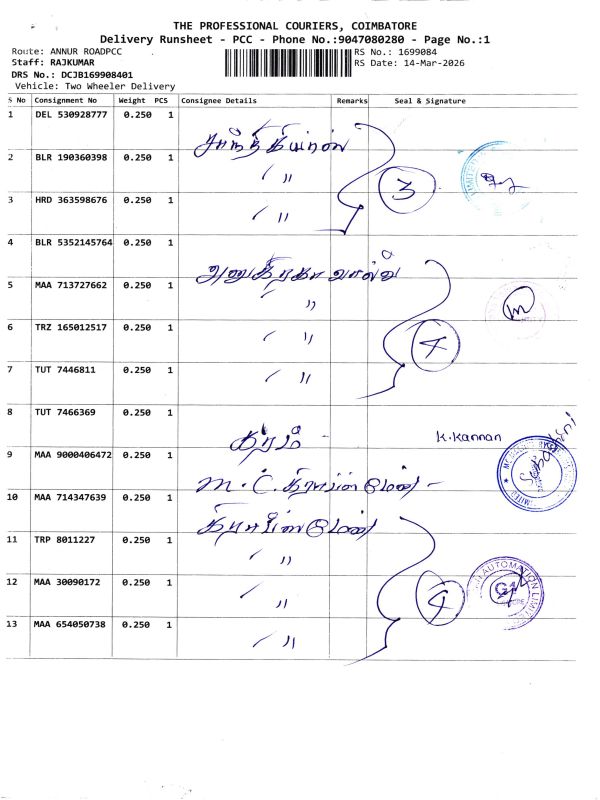 THE PROFESSIONAL COURIERS, COIMBATORE
Delivery Runsheet - PCC - Phone No.:9047080280 - Page No.:1
Route: ANNUR ROADPCC
RS No.: 1699084
Staff: RAJKUMAR
RS Date: 14-Mar-2026
DRS No.: DCJB169908401
Vehicle: Two Wheeler Delivery
S No Consignment No Weight PCS Consignee Details Remarks Seal & Signature
1 DEL 530928777 0.250 1
2 BLR 190360398 0.250 1 " 3
3 HRD 363598676 0.250 1 "
4 BLR 5352145764 0.250 1
5 MAA 713727662 0.250 1 "
6 TRZ 165012517 0.250 1 " 4
7 TUT 7446811 0.250 1 "
8 TUT 7466369 0.250 1 K. Kannan
9 MAA 9000406472 0.250 1 M. C.
10 MAA 714347639 0.250 1
11 TRP 8011227 0.250 1 "
12 MAA 30090172 0.250 1 " 4
13 MAA 654050738 0.250 1 "
AUTOMATION LIMITED